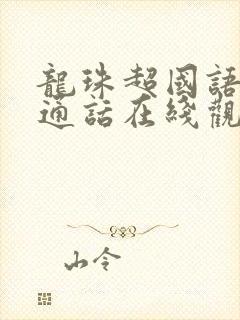 龍珠超國語
通話在綫觀
山令